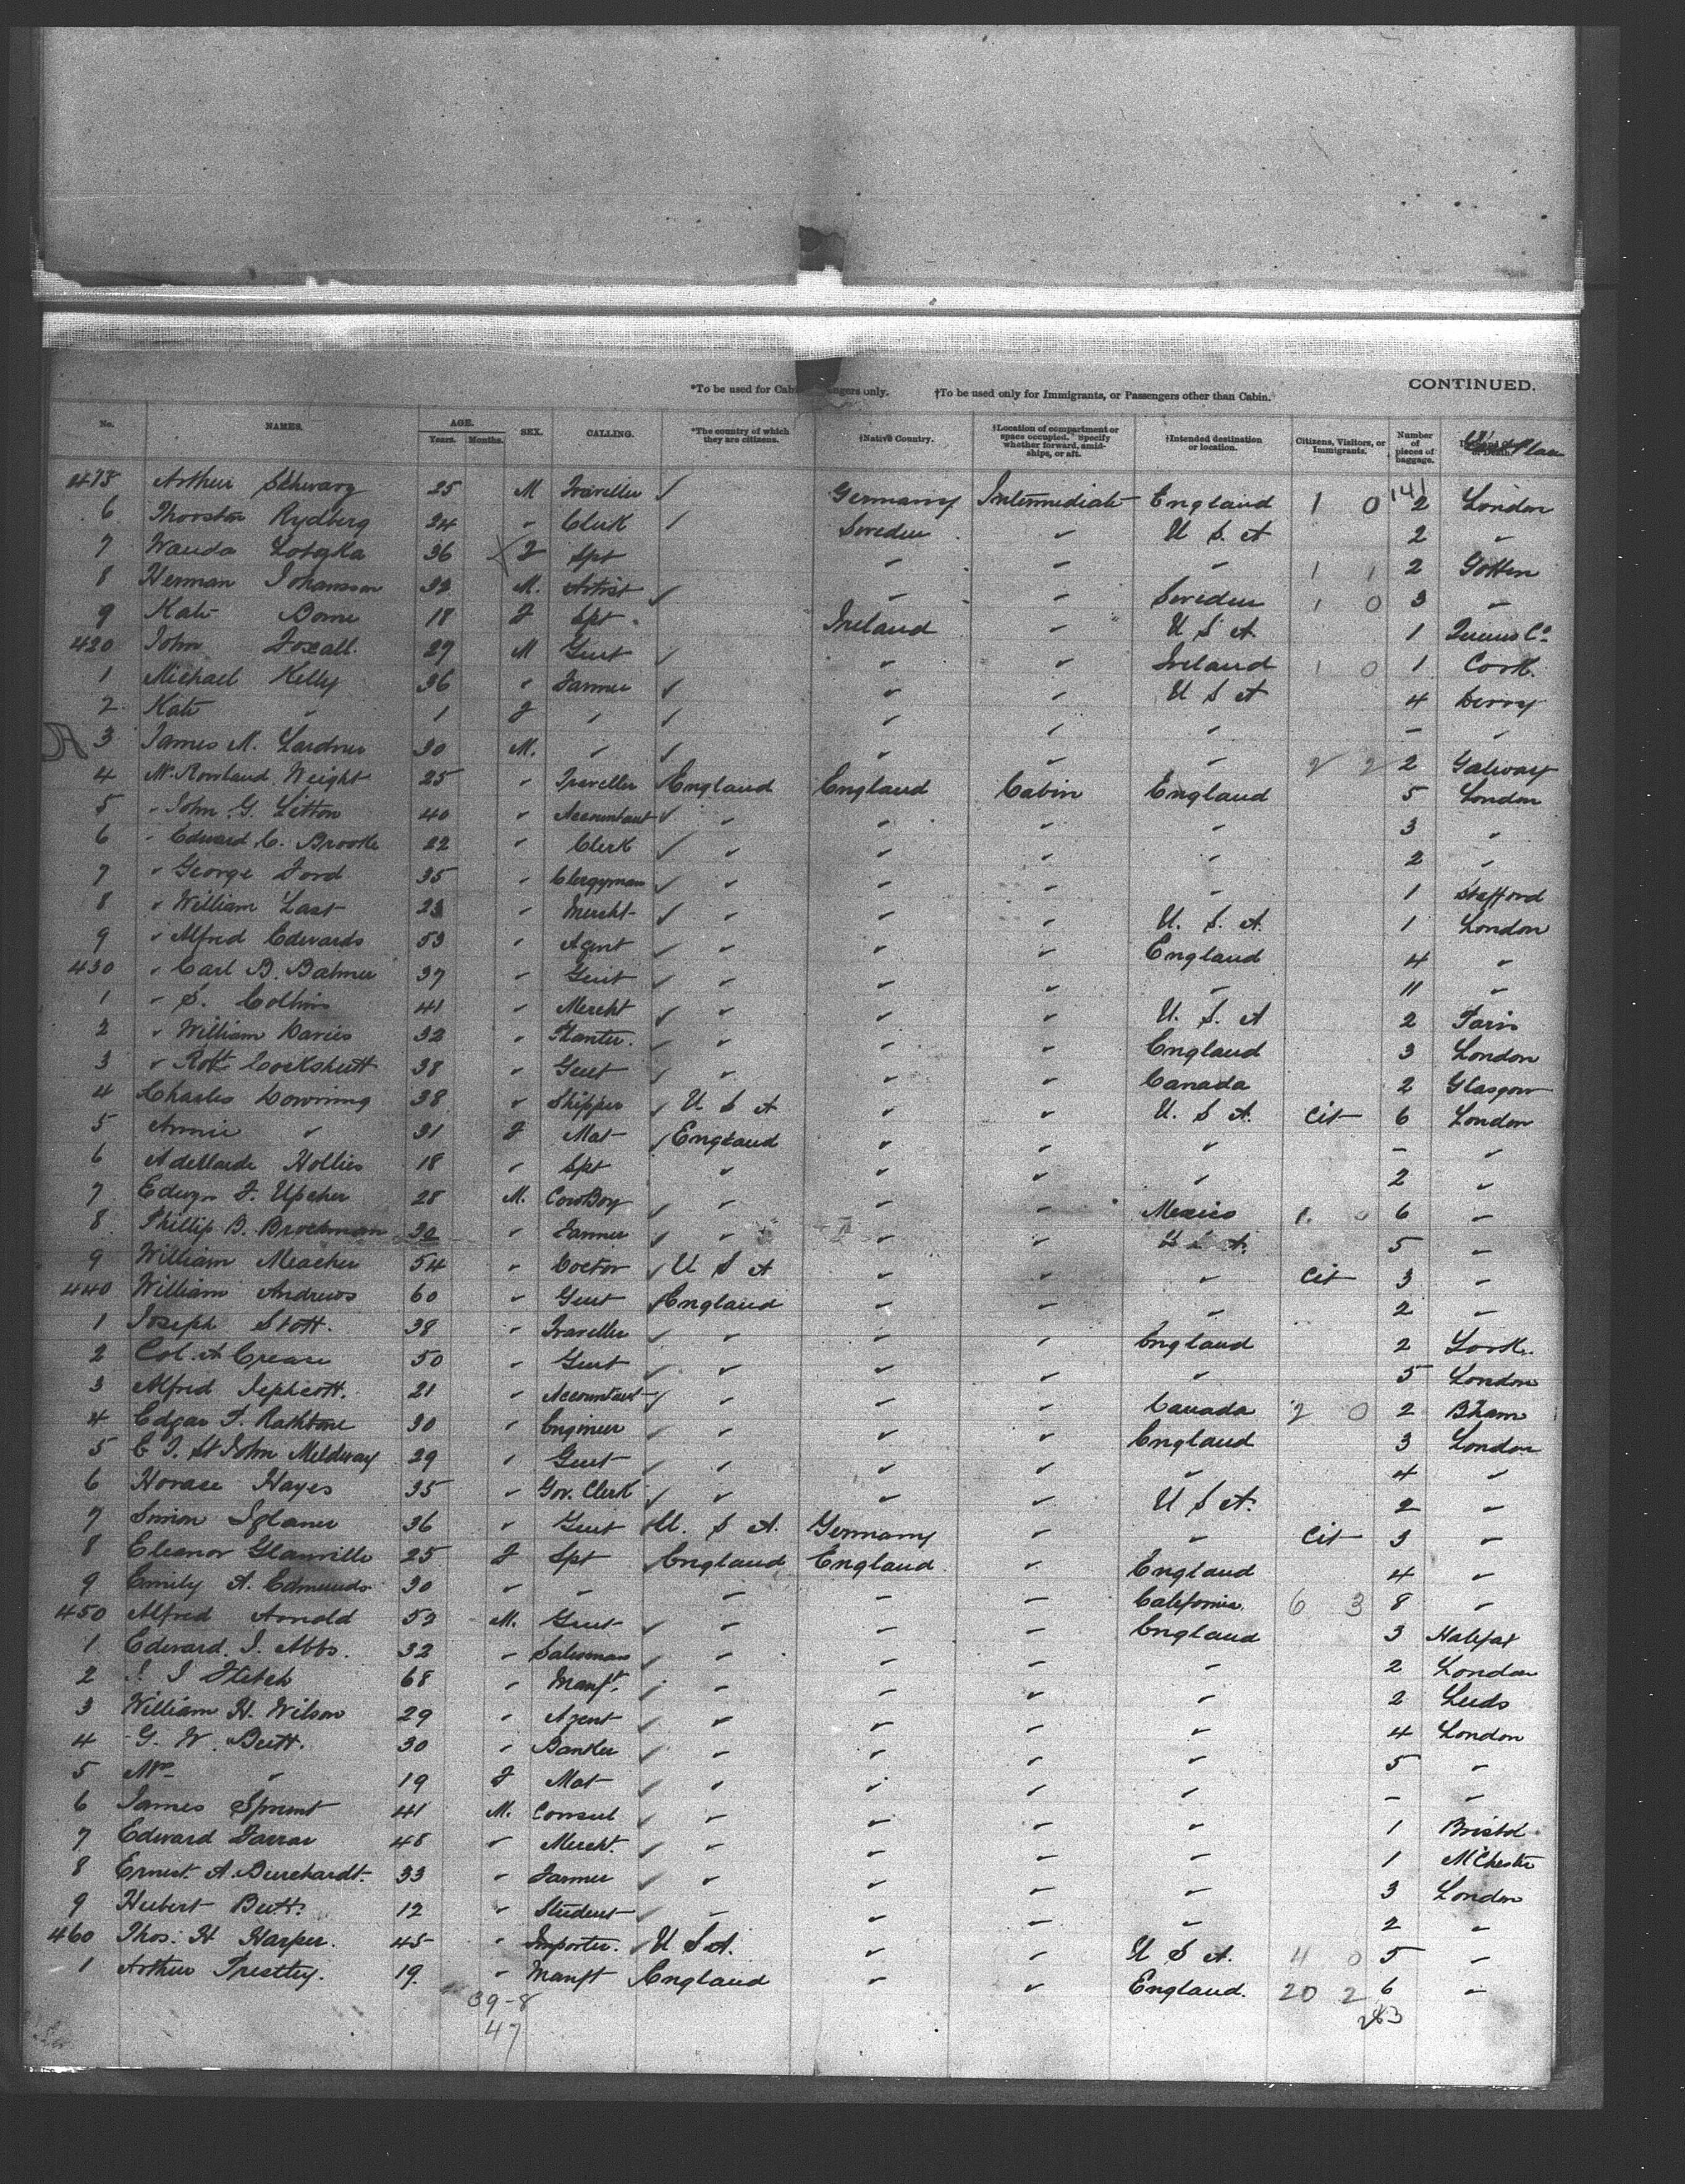 CONTINUED.
*To be used for Cabin Passengers only. †To be used only for Immigrants, or Passengers other than Cabin.
No. NAMES. AGE. Years. Months. SEX. CALLING. *The country of which they are citizens. †Native Country. †Location of compartment or space occupied. Specify whether forward, amidships, or aft. †Intended destination or location. Citizens, Visitors, or Immigrants. Number of pieces of baggage. Place
Arthur Schwarz 25 M Traveller ✓ Germany Intermediate England 1 0 141 2 London
6 Rydberg 34 " Clerk Sweden " U S A 2 "
7 Wanda 36 F Spt " " " 1 1 2 Gotten
8 Herman Johansson 32 M. Artist ✓ " " Sweden 1 0 3 "
9 Kate 18 F Spt Ireland " U S A 1 Queens Co
420 John Foxall 27 M Gent ✓ " " Ireland 1 0 1 Cork
1 Michael Kelly 36 " Farmer ✓ " " U S A 4 Derry
2 Kate " 1 F " ✓ " " " - "
3 James N. Lardner 30 M. " ✓ " " " 2 2 2 Galway
4 Mr Rowland Weight 25 " Traveller England England Cabin England 5 London
5 " John G. Litton 40 " Accountant ✓ " " " " 3 "
6 " Edward C. Brooke 22 " Clerk ✓ " " " " 2 "
7 " George Ford 35 " Clergyman ✓ " " " " 1 Stafford
8 " William Last 23 " Mercht ✓ " " " U. S. A. 1 London
9 " Alfred Edwards 53 " Agent ✓ " " " England 4 "
430 " Carl B. Balmer 37 " Gent ✓ " " " " 11 "
1 " S. Collins 41 " Mercht ✓ " " " U. S. A 2 Paris
2 " William Davies 32 " Planter. ✓ " " " England 3 London
3 " Robt Cockshutt 38 " Gent ✓ " " " Canada 2 Glasgow
4 Charles Downing 38 " Shipper ✓ U S A " " U. S A. Cit 6 London
5 Annie " 31 F Mat ✓ England " " " - "
6 Adellaide Hollies 18 " Spt " " " " 2 "
7 Edwyn F. Upcher 28 M. CowBoy ✓ " " " Mexico 1 0 6 "
8 Phillip B. Brockman 32 " Farmer ✓ " " " U S A. 5 "
9 William Meacher 54 " Doctor ✓ U S A " " " Cit 3 "
440 William Andrews 60 " Gent ✓ England " " " 2 "
1 Joseph Stott. 38 " Traveller ✓ " " " England 2 York.
2 Col. A Crease 50 " Gent ✓ " " " " 5 London
3 Alfred Jephcott. 21 " Accountant ✓ " " " Canada 2 0 2 Bham
4 Edgar P. Rathbone 30 " Engineer ✓ " " " England 3 London
5 St John Mildmay 29 " Gent ✓ " " " " 4 "
6 Horace Hayes 35 " Gov. Clerk ✓ " " " U S A. 2 "
7 Simon Iglauer 36 " Gent ✓ U. S A. Germany " " Cit 3 "
8 Eleanor Glanville 25 F Spt England England " England 4 "
9 Emily A. Edmunds 30 " " " " " California. 6 3 8 "
450 Alfred Arnold 52 M. Gent ✓ " " " England 3 Halifax
1 Edward J. Abbs. 32 " Salesman ✓ " " " " 2 London
2 Fitch 68 " Manft. ✓ " " " " 2 Leeds
3 William H. Wilson 29 " Agent ✓ " " " " 4 London
4 G. W. Butt. 30 " Banker ✓ " " " " 5 "
5 Mrs " 19 F Mat ✓ " " " " - "
6 James Sprunt 41 M. Consul ✓ " " " " 1 Bristol
7 Edward Farrar 45 " Mercht. ✓ " " " " 1 M'Chester
8 Ernest A. Burchardt. 33 " Farmer ✓ " " " " 3 London
9 Hubert Butt. 12 " Student ✓ " " " " 2 "
460 Thos. H Harper. 45 " Importer. ✓ U S A. " " U S A. 4 0 5 "
1 Arthur 19. " Manft England " " England. 20 2 6 "
39-8
47